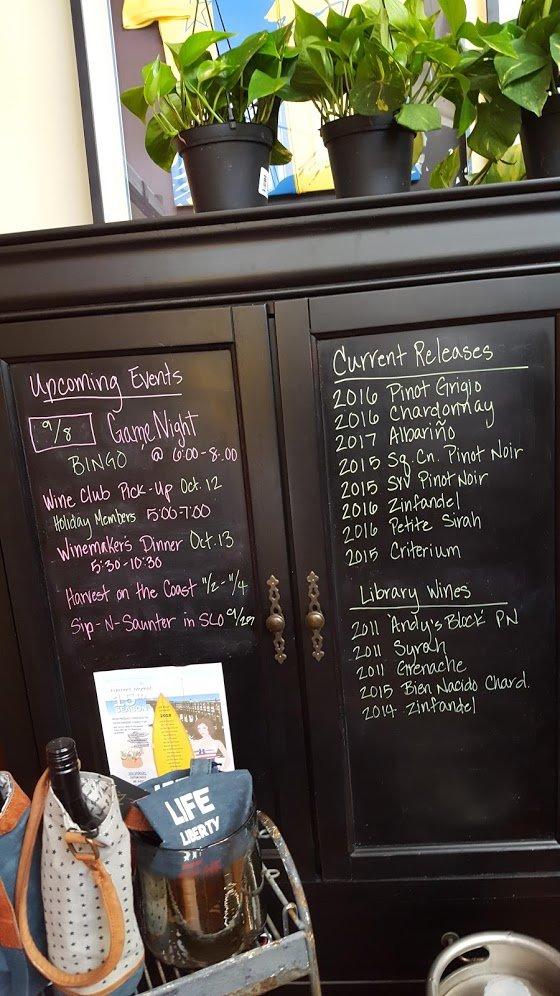 Upcoming Events
9/8 Game Night
BINGO @ 6:00-8:00
Wine Club Pick-Up Oct. 12
Holiday Members 5:00-7:00
Winemaker's Dinner Oct. 13
5:30-10:30
Harvest on the Coast 11/2-11/4
Sip-N-Saunter in SLO 9/29
Current Releases
2016 Pinot Grigio
2016 Chardonnay
2017 Albariño
2015 Sq. Cn. Pinot Noir
2015 SYV Pinot Noir
2016 Zinfandel
2016 Petite Sirah
2015 Criterium
Library Wines
2011 'Andy's Block' PN
2011 Syrah
2011 Grenache
2015 Bien Nacido Chard.
2014 Zinfandel
15th
SEASON
2018
LIFE
LIBERTY